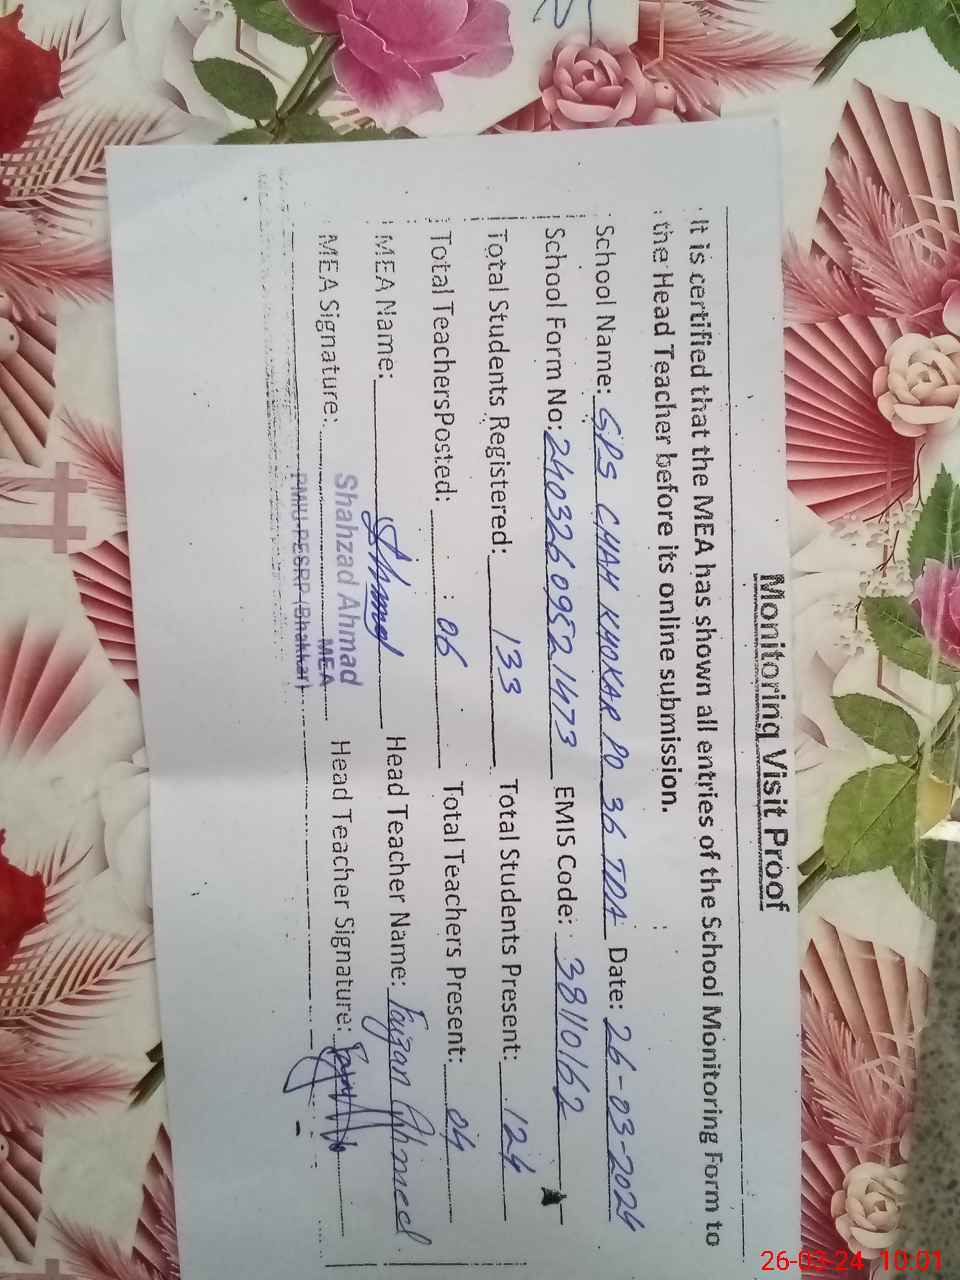 Monitoring Visit Proof
It is certified that the MEA has shown all entries of the School Monitoring Form to
the Head Teacher before its online submission.
School Name: GPS CHAH KHOKAR PO 36 TDA Date: 26-03-2024
School Form No: 24032609521473 EMIS Code: 38110162
Total Students Registered: 133 Total Students Present: 124
Total TeachersPosted: 06 Total Teachers Present: 04
MEA Name: Head Teacher Name: Faizan Ahmed
MEA Signature: Shahzad Ahmad Head Teacher Signature:
MEA
PMIU-PESRP (Bhakkar)
26-03-24 10:01